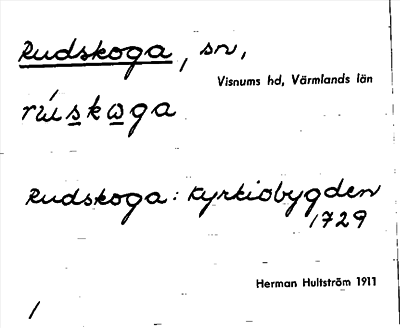 Rudskoga, sn,
Visnums hd, Värmlands län
rú́skωga
Rudskoga: Kyrkiobygden
1729
Herman Hultström 1911
/